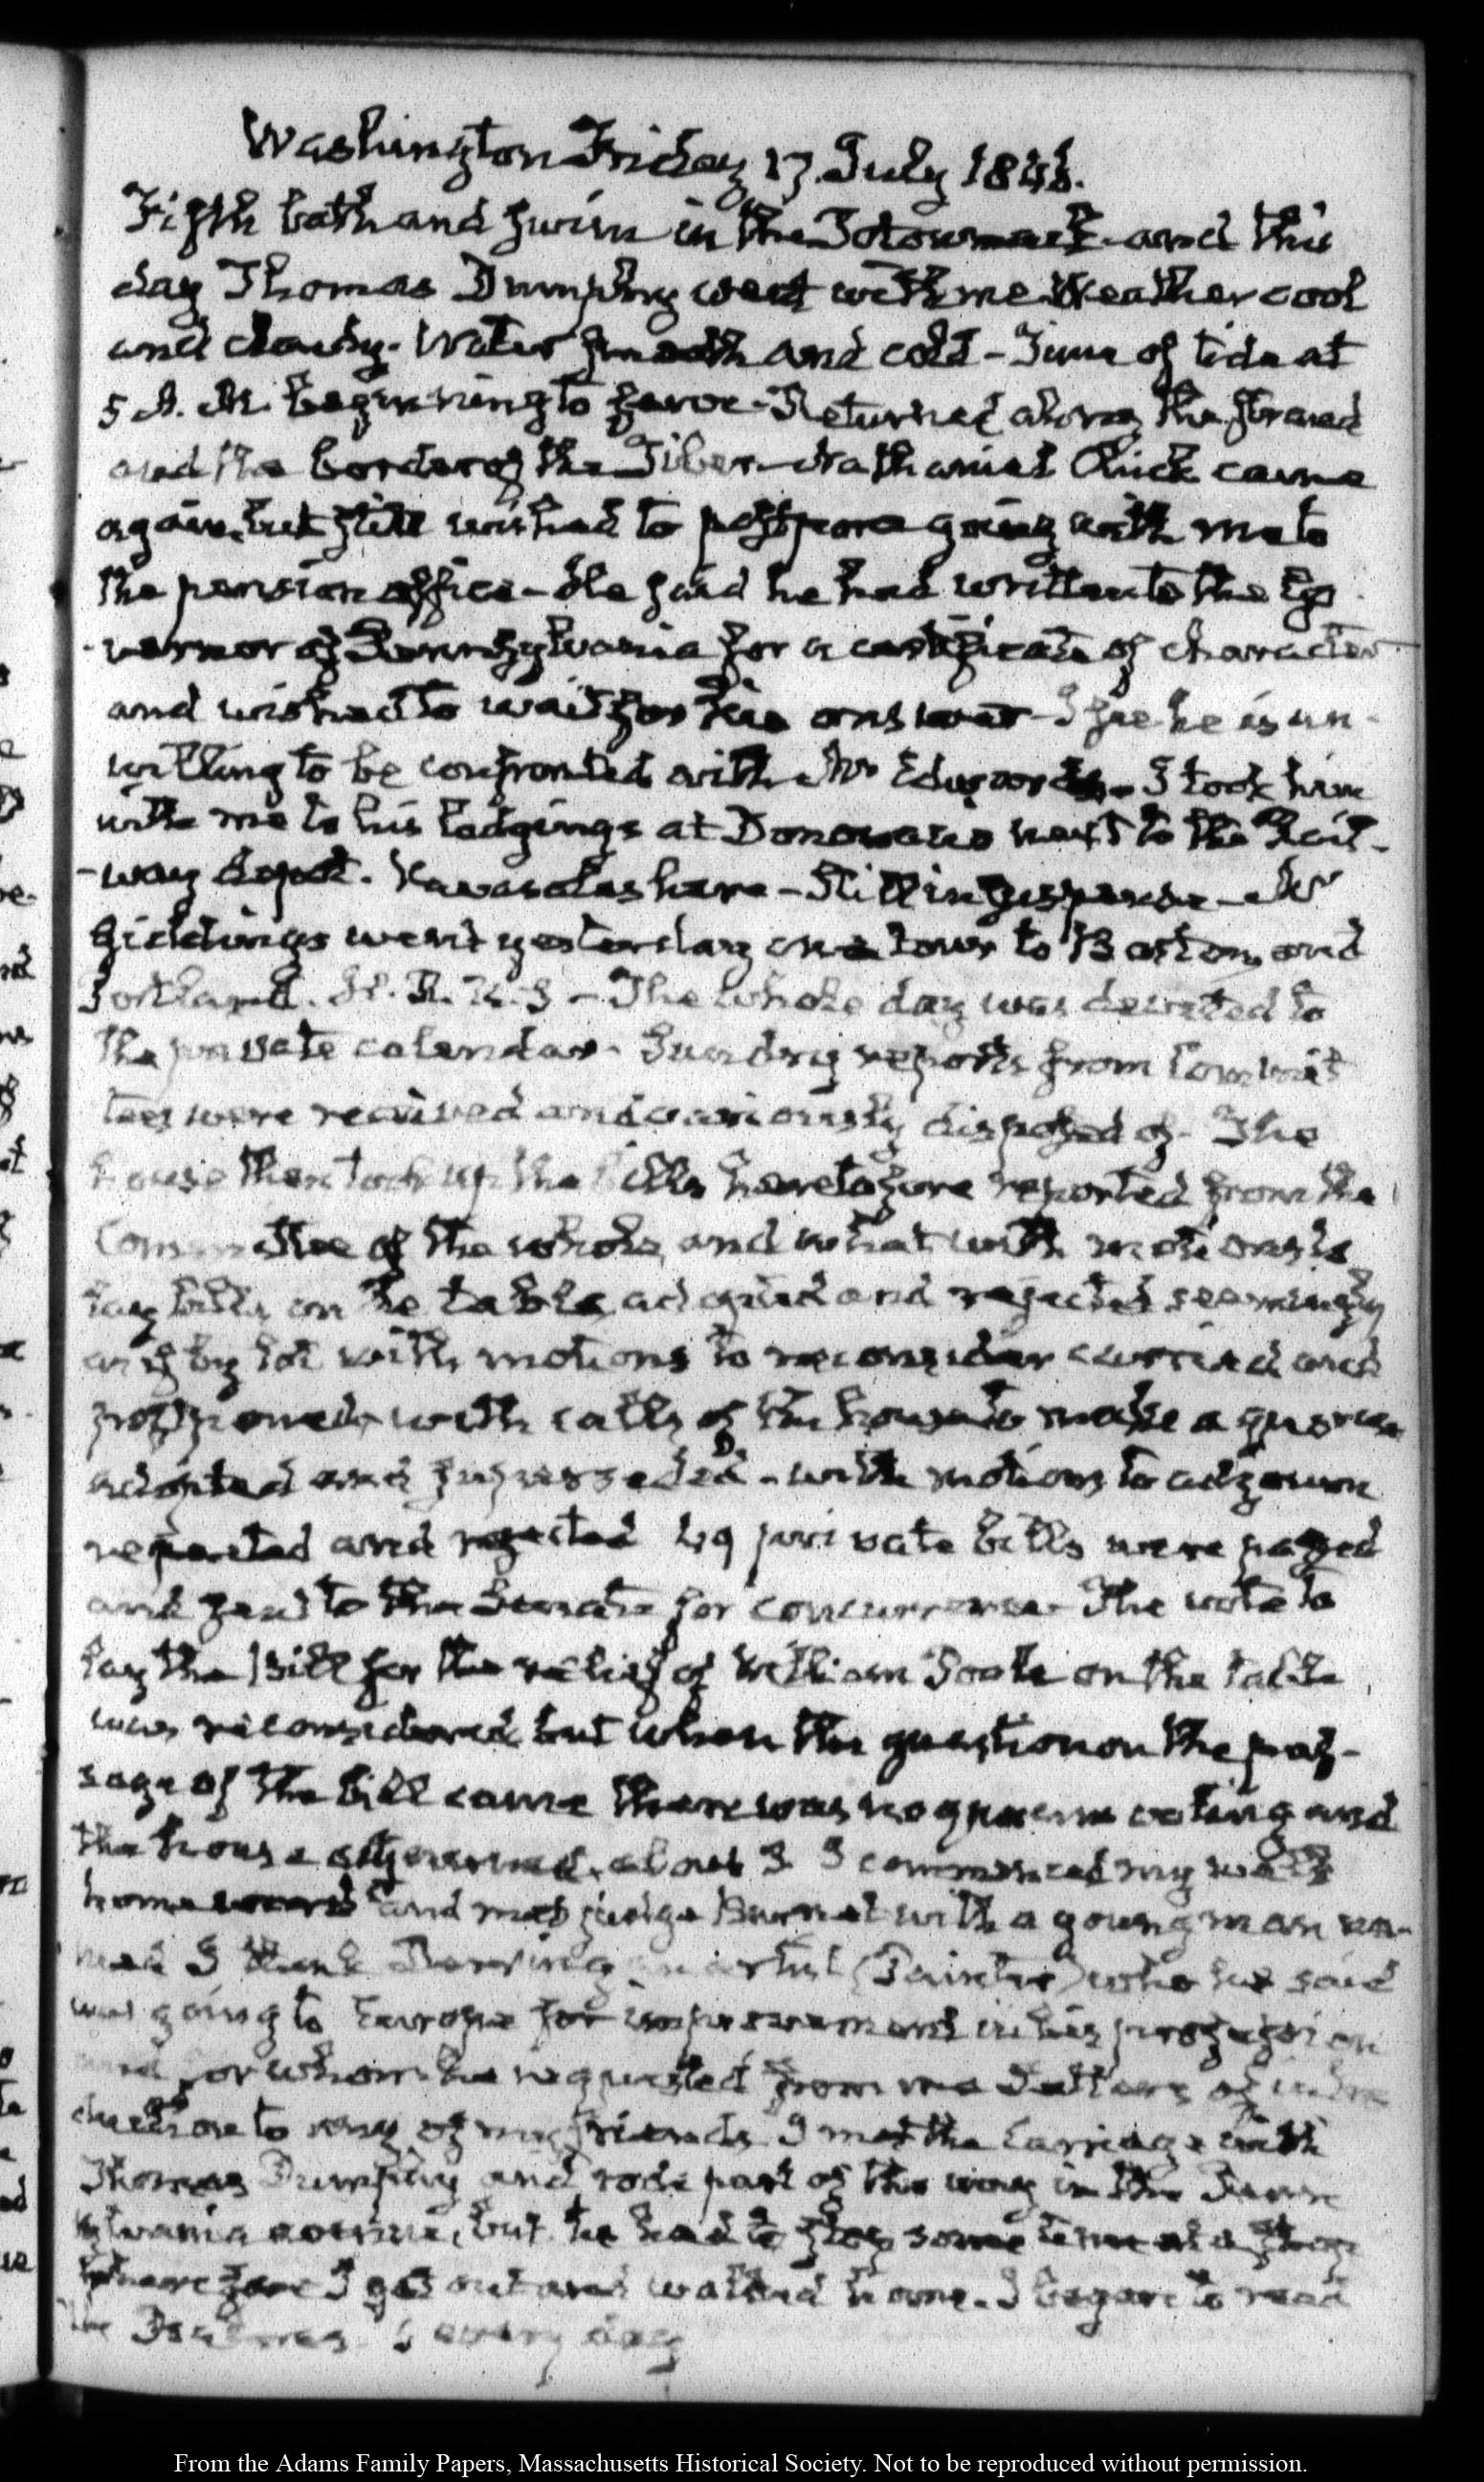 Washington Friday 17. July 1846.
Fifth bath and swim in the Potowmack and this
day Thomas Dumphy went with me Weather cool
and cloudy. Water smooth and cold – Turn of tide at
5 A.M. beginning to Returned along the strand
and the border of the Tiber – Nathaniel Quick came
again, but still wished to postpone going with me to
the pension office – He said he had written to the Go
-vernor of Pennsylvania for a certificate of character
and wished to wait for his answer – I see he is un-
willing to be confronted with Mr Edwards – I took him
with me to his lodgings at Donovans next to the Rail-
-way depot. was here – Still in suspense – Mr
Giddings went yesterday on a tour to Boston and
Portland. H.R.U.S – The whole day was devoted to
the private calendar. Sundry reports from Commit
tees were received and variously disposed of. The
house then took up the bills heretofore reported from the
Committee of the whole, and what with motions to
lay bills on the table, and rejected seemingly
as if by lot with motions to reconsider carried and
postponed, with calls of the house to make a quorum
adopted and superseded – with motions to adjourn
repeated and rejected 49 private bills were passed
and sent to the Senate for concurrence. The vote to
lay the Bill for the relief of William Poole on the table
was reconsidered but when the question on the pas-
sage of the bill came there was no quorum voting and
the house adjourned. about 3. I commenced my walk
homeward and met judge Burnet with a young man na-
med I think an artist (Painter) who he said
was going to Europe for improvement in his profession
and for whom he requested from me Letters of intro
duction to any of my friends I met the Carriage with
Thomas Dumphy and rode part of the way in the Penn
sylvania avenue, but he had to stop some time at a shop
therefore I got out and walked home. I began to read
the Psalms 5 every day
From the Adams Family Papers, Massachusetts Historical Society. Not to be reproduced without permission.